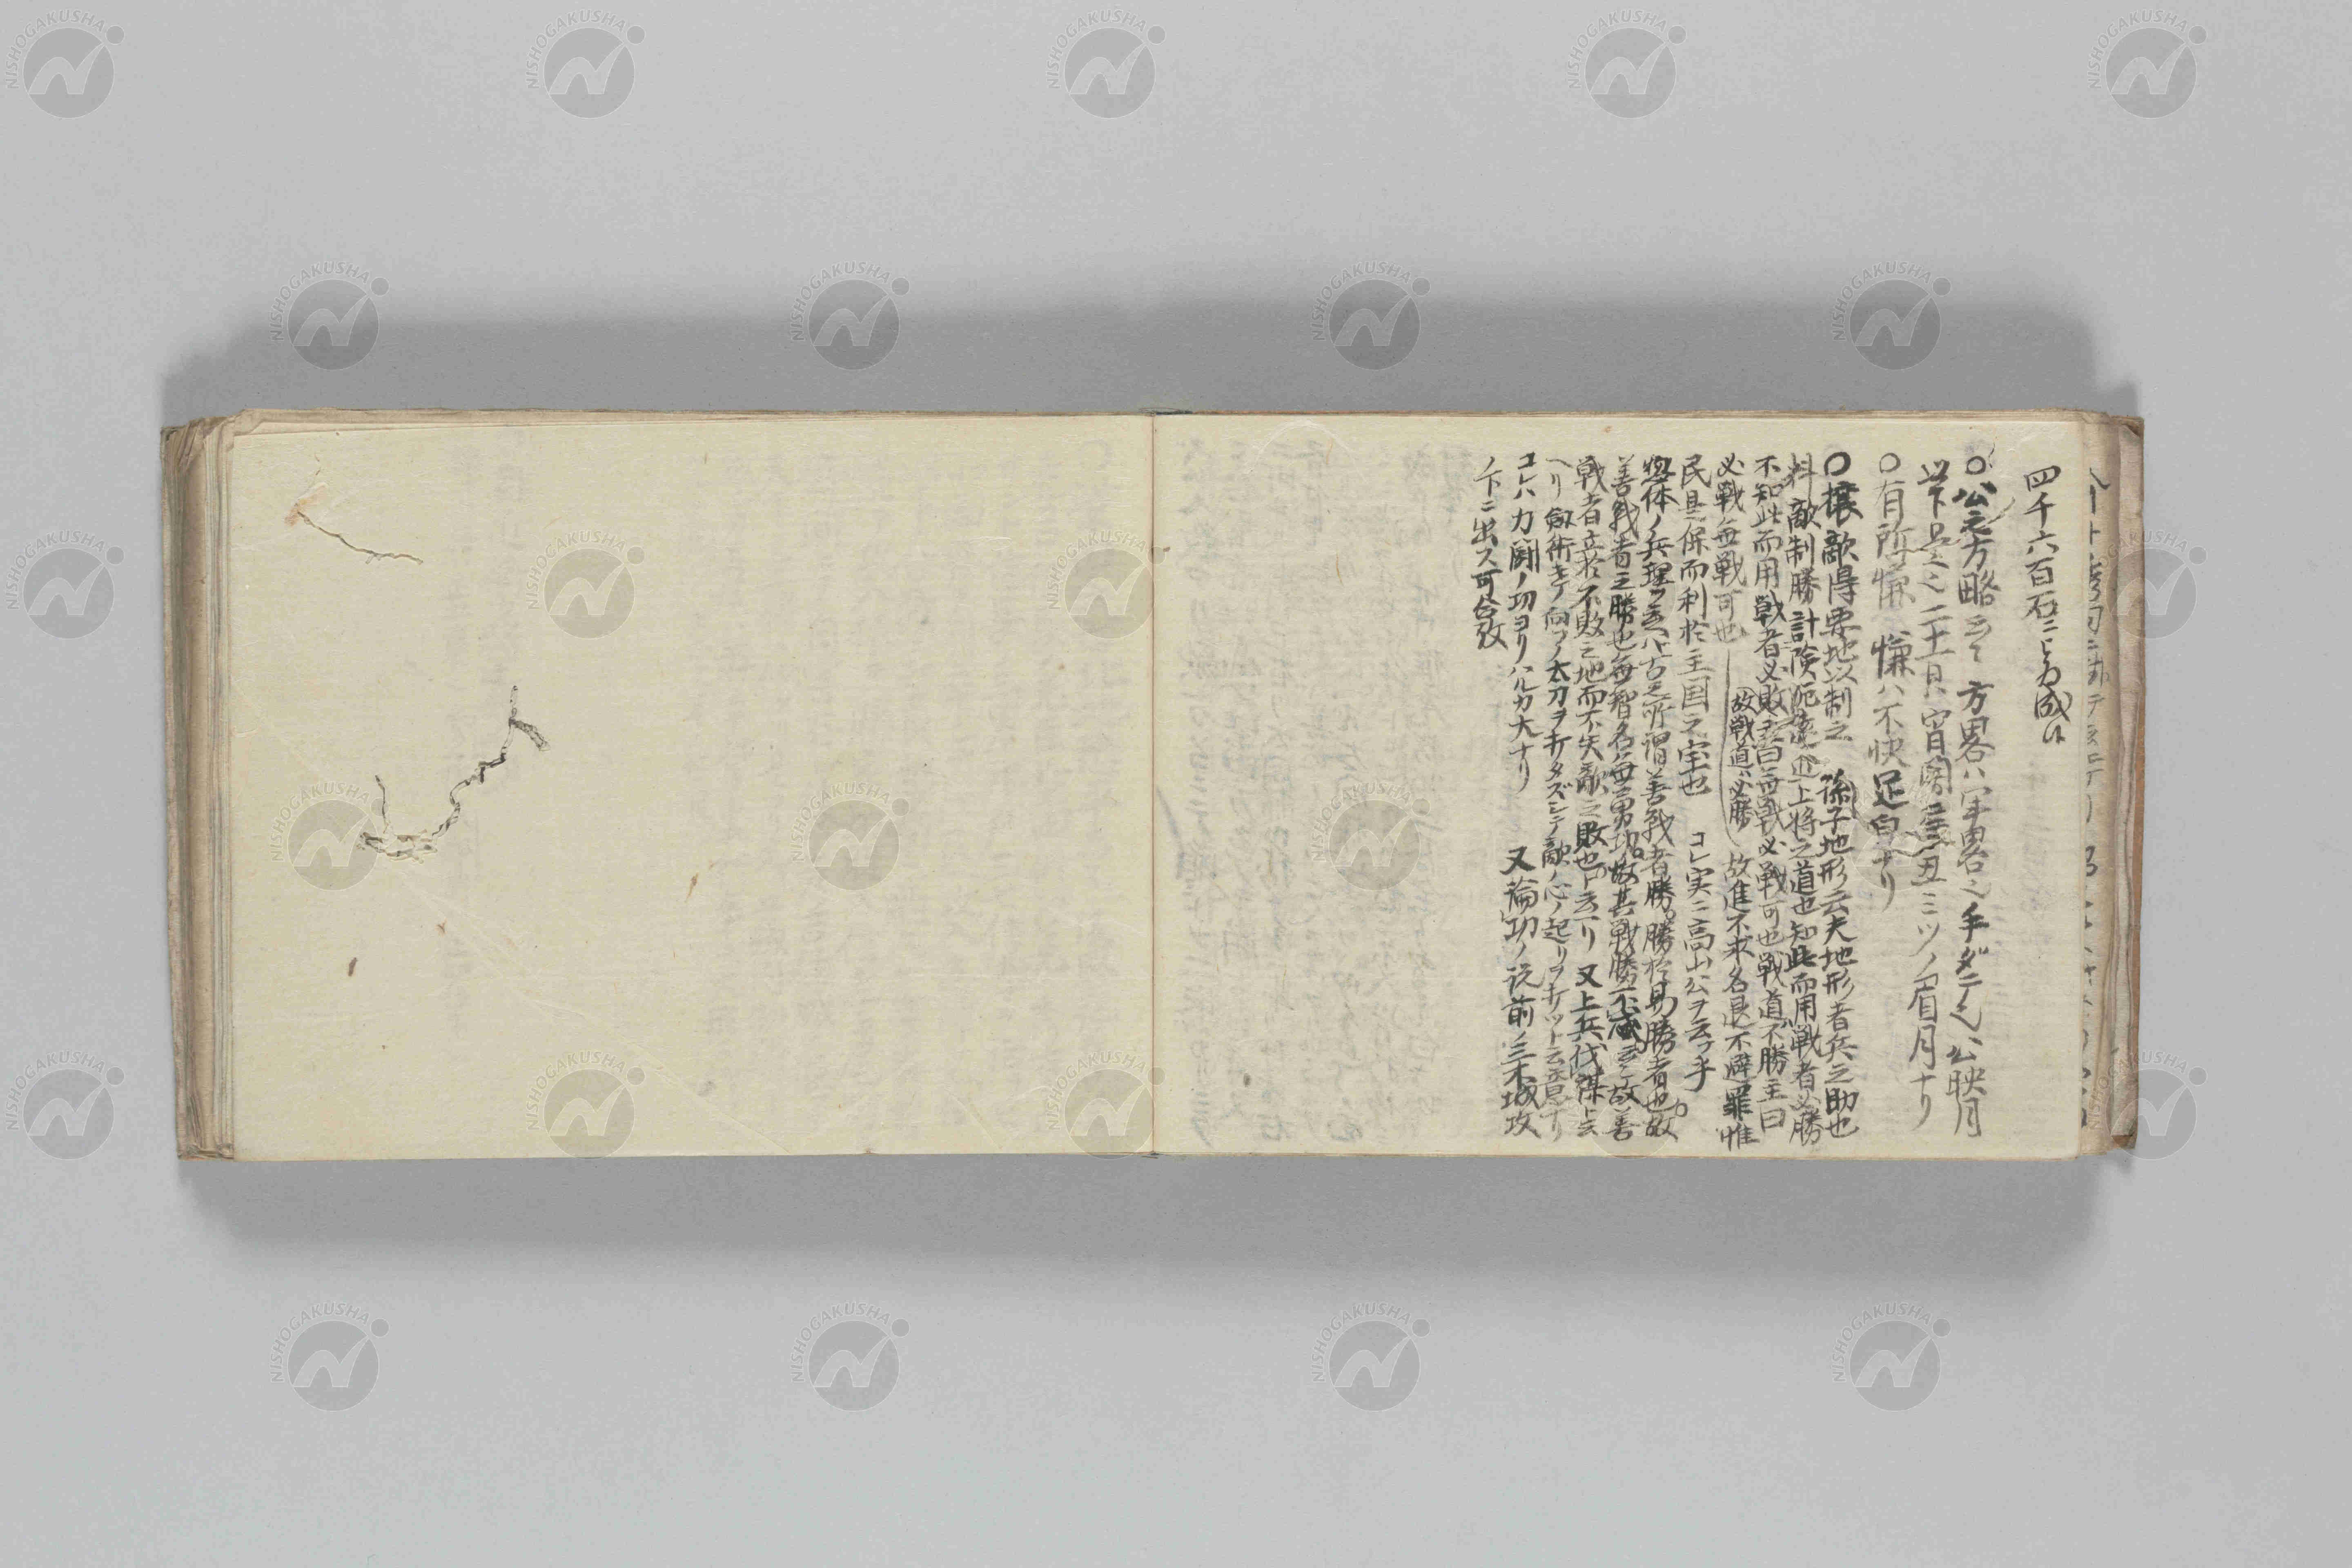 四千六百石ニ成
○公之方略云々 方畧ハ軍畧之手ダテ也 公映月
二十日宵闇丑ミツノ眉月ナリ
○有所慊 慊ハ不快足皃ナリ
○攘敵得要地以制之 孫子地形云夫地形者兵之助也
料敵制勝計険阨遠近上将之道也知此而用戦者必勝
不知此而用戦者必敗 無戦必戦可也戦道不勝主曰
必戦無戦可也 故戦道必勝 故進不求名退不避罪惟
民是保而利於主国之宝也 コレ実ニ高山公ヲ云フ乎
惣体ノ兵理ヲ云ヘハ古之所謂善戦者勝勝於易勝者也故
善戦者之勝也無智名無勇功故其戦勝不忒云々故善
戦者立於不敗之地而不失敵之敗也ト云ヘリ 又上兵伐謀ト云
ヘリ 劔術ニテ向フノ太刀ヲ打タズシテ敵ノ心ノ起リヲ打ツト云意ナリ
コレハ力闘ノ功ヨリハルカ大ナリ 又論功ノ説前ノ三木城攻
ノ下ニ出ス可合攷
NISHOGAKUSHA